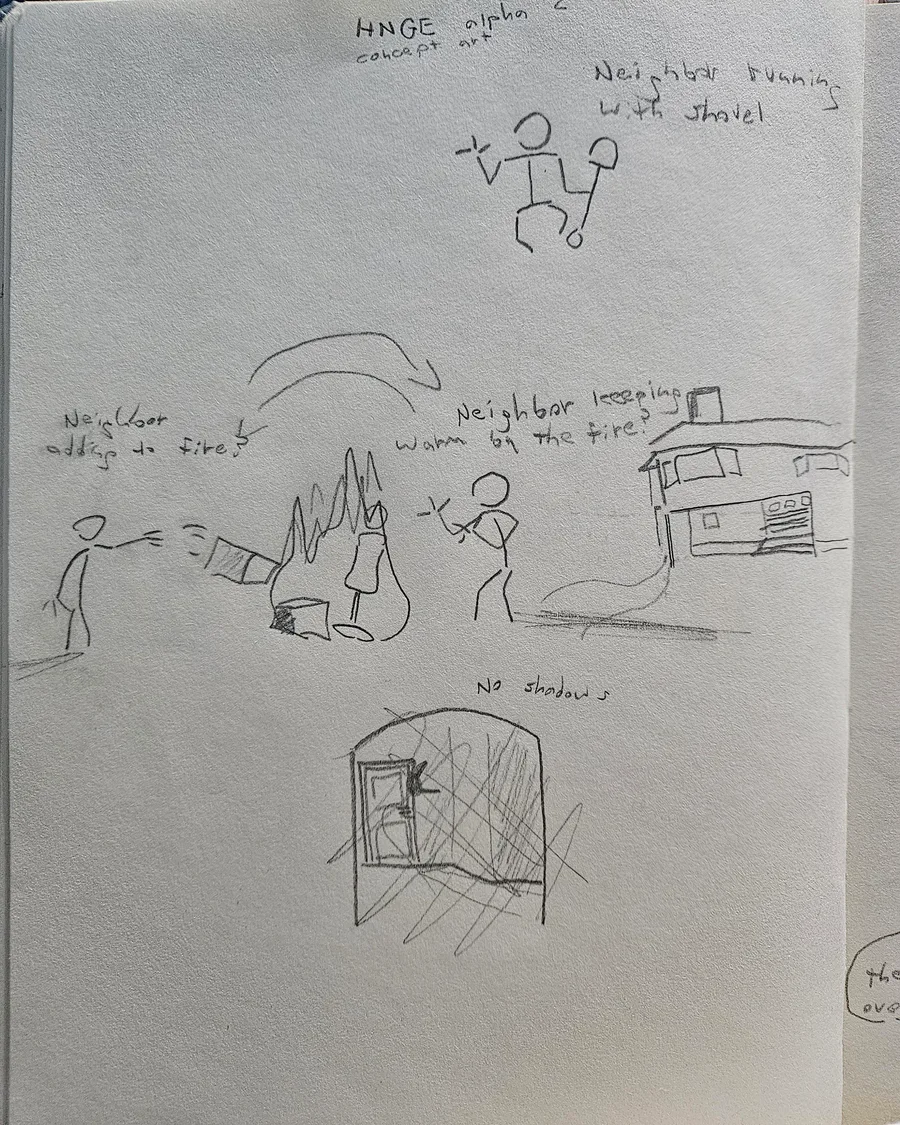 HNGE alpha 2
concept art
Neighbor running
with shovel
Neighbor
adding to fire?
Neighbor keeping
warm by the fire?
No shadows
the
ove